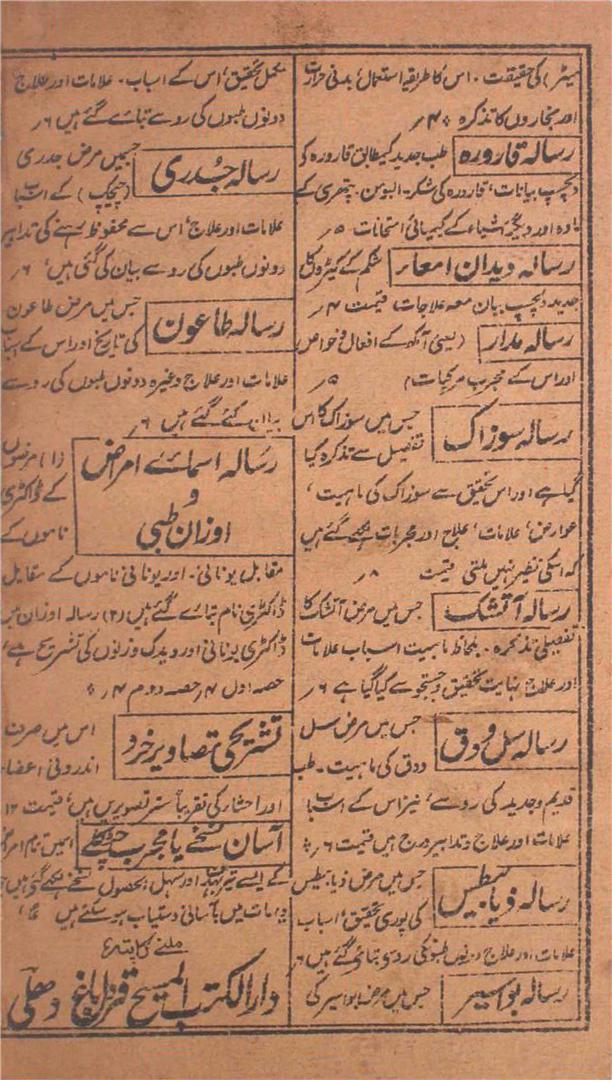 میٹر) کی حقیقت۔ اس کا طریقہ استعمال، بدنی حرارت
اور بخاروں کا تذکرہ ۴ر
رسالہ قارورہ طب جدید کے مطابق قارورہ کو
دلچسپ بیانات، قارورہ کی شکر۔ البومن۔ پتھری کے
مادہ اور دیگر اشیاء کے کیمیائی امتحانات ۵ر
رسالہ دیدان امعاء شکم کے کیڑوں کا
جدید دلچسپ بیان معہ علاجات قیمت ۴ر
رسالہ مدار (یعنی آکھ کے افعال و خواص
اور اس کے مجرب مرکبات) ۵ر
رسالہ سوزاک جس میں سوزاک کا اس
تفصیل سے تذکرہ کیا
گیا ہے اور اس تحقیق سے سوزاک کی ماہیت،
عوارض، علامات، علاج اور مجربات لکھے گئے ہیں
کہ اسکی نظیر نہیں ملتی قیمت ۸ر
رسالہ آتشک جس میں مرض آتشک کا
تفصیلی تذکرہ۔ بلحاظ ماہیت اسباب علامات
اور علاج نہایت تحقیق و جستجو سے کیا گیا ہے ۶ر
رسالہ سل و دق جس میں مرض سل
و دق کی ماہیت۔ طب
قدیم و جدید کی رو سے، نیز اس کے اسباب
علامات اور علاج و تدابیر درج ہیں قیمت ۶ر
رسالہ ذیابیطس جس میں مرض ذیابیطس
کی پوری تحقیق، اسباب
علامات اور علاج دونوں طبوں کی رو سے بتائے گئے ہیں ۶ر
رسالہ بواسیر جس میں مرض بواسیر کی
مکمل تحقیق، اس کے اسباب۔ علامات اور علاج
دونوں طبوں کی رو سے بتائے گئے ہیں ۶ر
رسالہ جدری جسمیں مرض جدری
(چیچک) کے اسباب
علامات اور علاج، اس سے محفوظ رہنے کی تدابیر
دونوں طبوں کی رو سے بیان کی گئی ہیں، ۶ر
رسالہ طاعون جس میں مرض طاعون
کی تاریخ اور اس کے اسباب
علامات اور علاج وغیرہ دونوں طبوں کی رو سے
بیان کئے گئے ہیں ۶ر
رسالہ اسمائے امراض و اوزان طبی (۱) مرضوں
کے ڈاکٹری
ناموں کے
مقابل یونانی۔ اور یونانی ناموں کے مقابل
ڈاکٹری نام بتائے گئے ہیں (۲) رسالہ اوزان میں
ڈاکٹری یونانی اور ویدک وزنوں کی تشریح ہے،
حصہ اول ۴ر حصہ دوم ۴ر
تشریحی تصاویر خرد اس میں صرف
اندرونی اعضاء
اور احشار کی تقریباً ستر تصویریں ہیں، قیمت ۱۲
آسان نسخے یا مجرب چٹکلے اسمیں تمام امراض
کے ایسے تیر بہدف اور سہل الحصول نسخے لکھے گئے ہیں جو
دیہات میں بآسانی دستیاب ہو سکتے ہیں
ملنے کا پتہ
دارالکتب المسیح قرول باغ دھلی